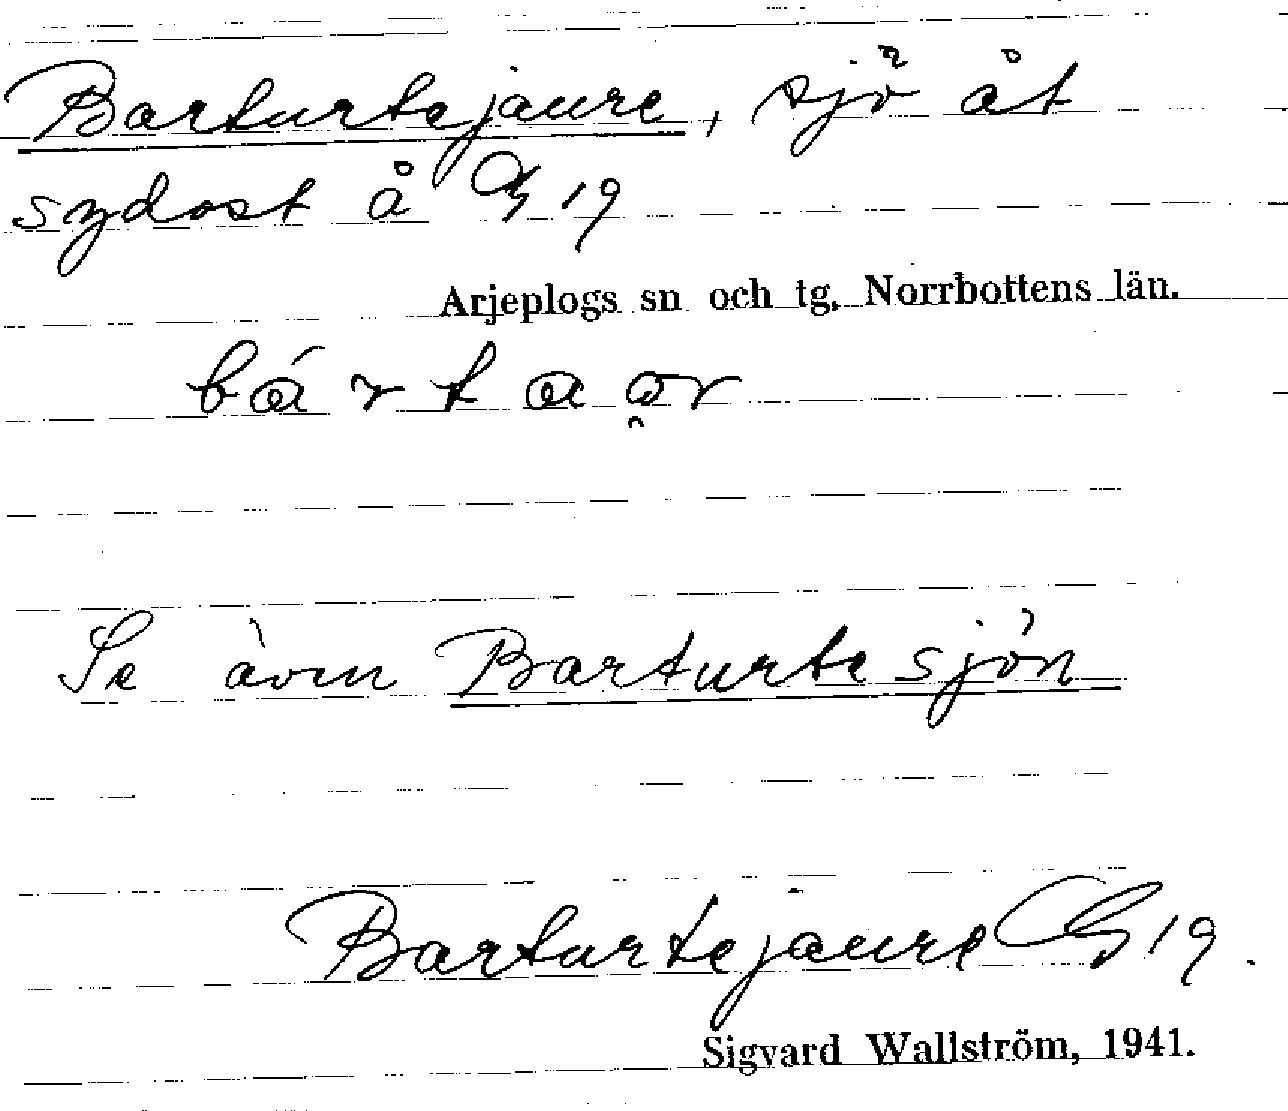 Barturtejaure, sjö åt
sydost å G 19
Arjeplogs sn och tg. Norrbottens län.
Se även Barturtesjön
Barturtejaure G 19.
Sigvard Wallström, 1941.